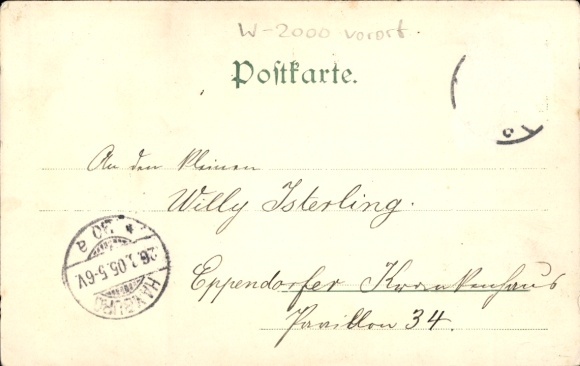 W-2000 vorort
Postkarte.
An den kleinen
Willy Isterling.
Eppendorfer Krankenhaus
Pavillon 34.
HAMBURG
26.1.05.5-6V.
* 30 a